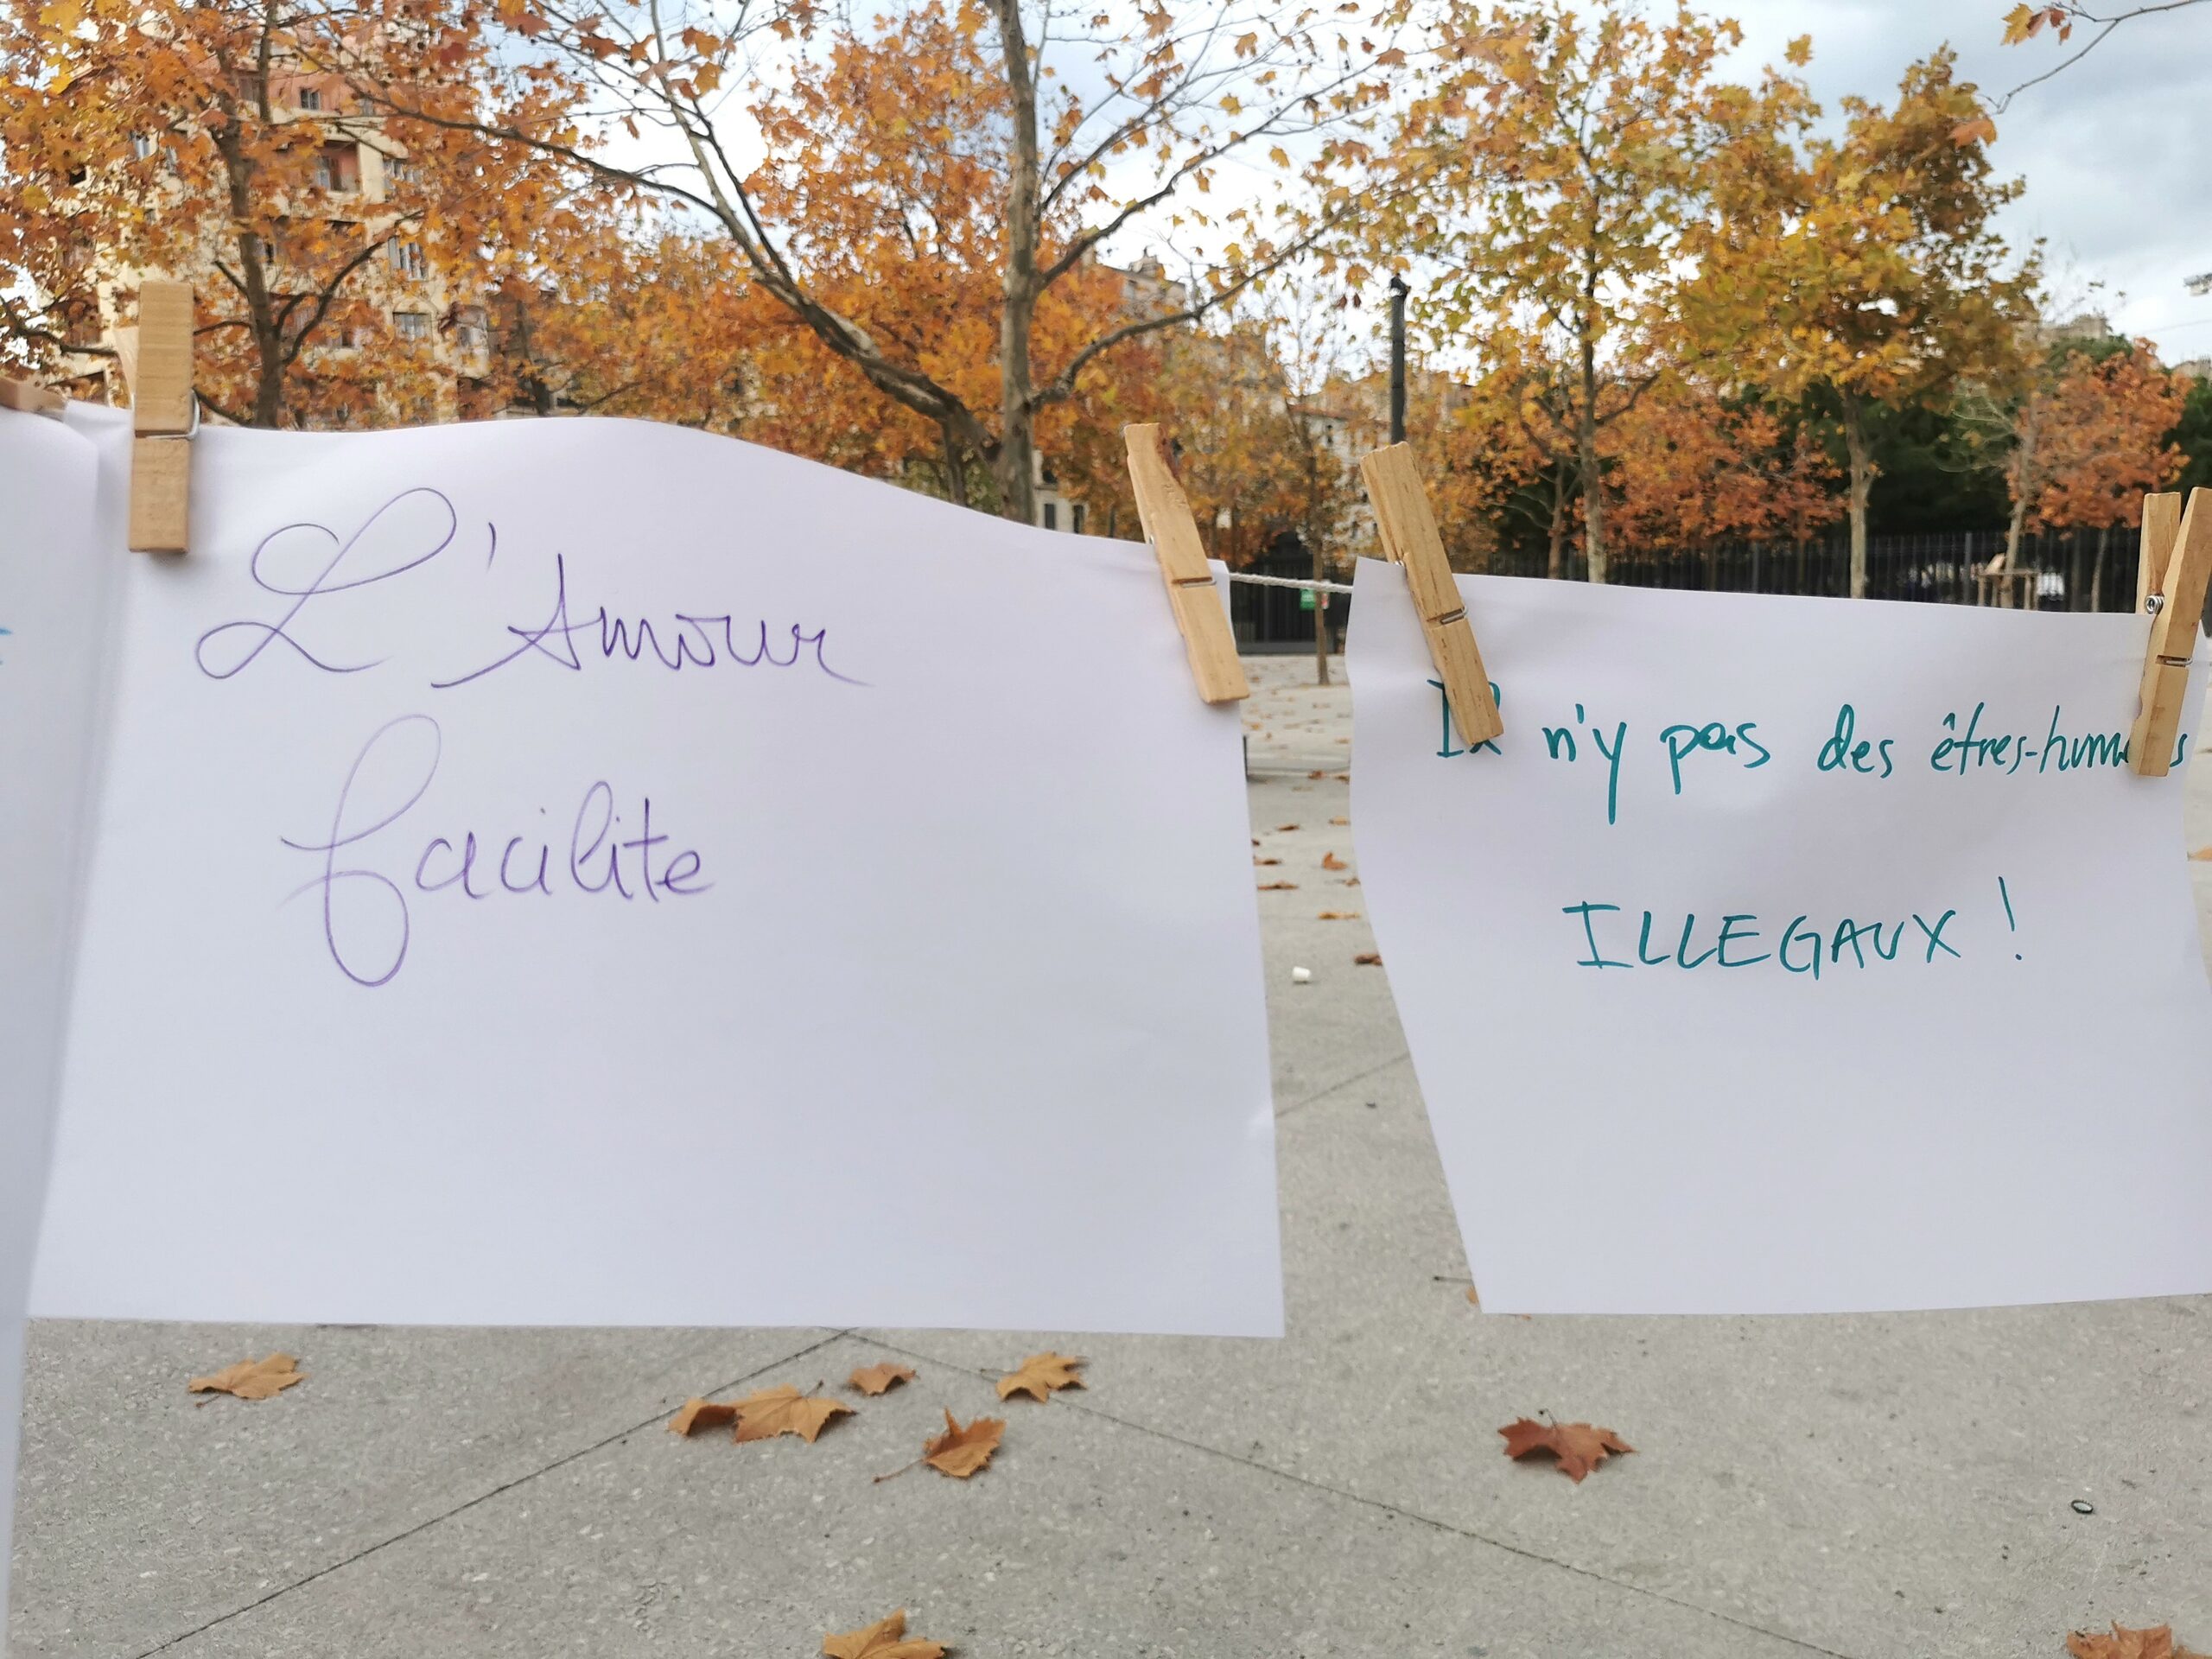 L'Amour
facilite
Il n'y pas des êtres-humains
ILLEGAUX !